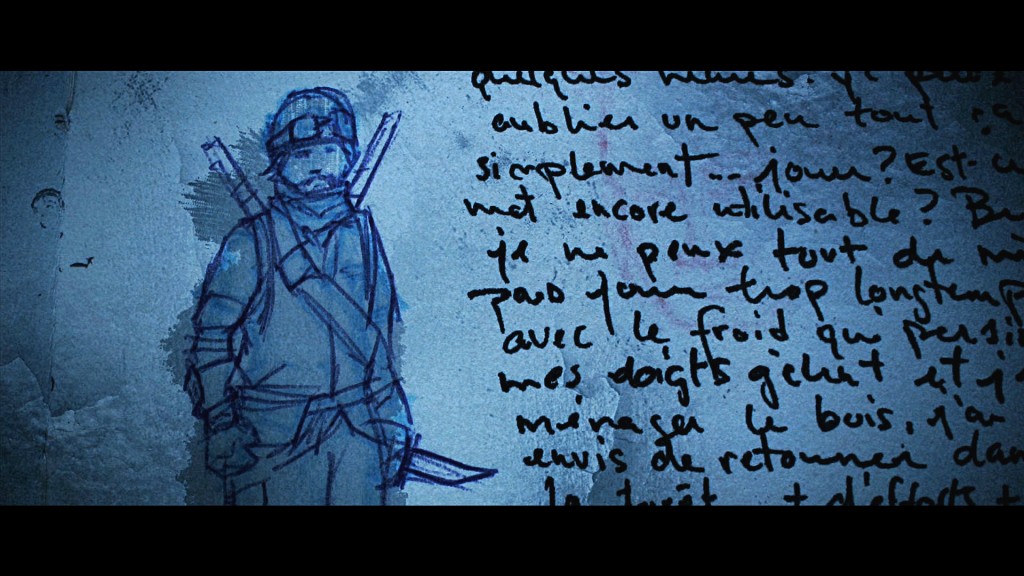 quelques heures. je peux
oublier un peu tout ça
simplement... jouer? Est-ce
met encore utilisable? B
je ne peux tout de mê
pas jouer trop longtemp
avec le froid qui persis
mes doigts gèlent et je
ménager le bois, j'ai
envis de retourner dan
la forêt et d'efforts